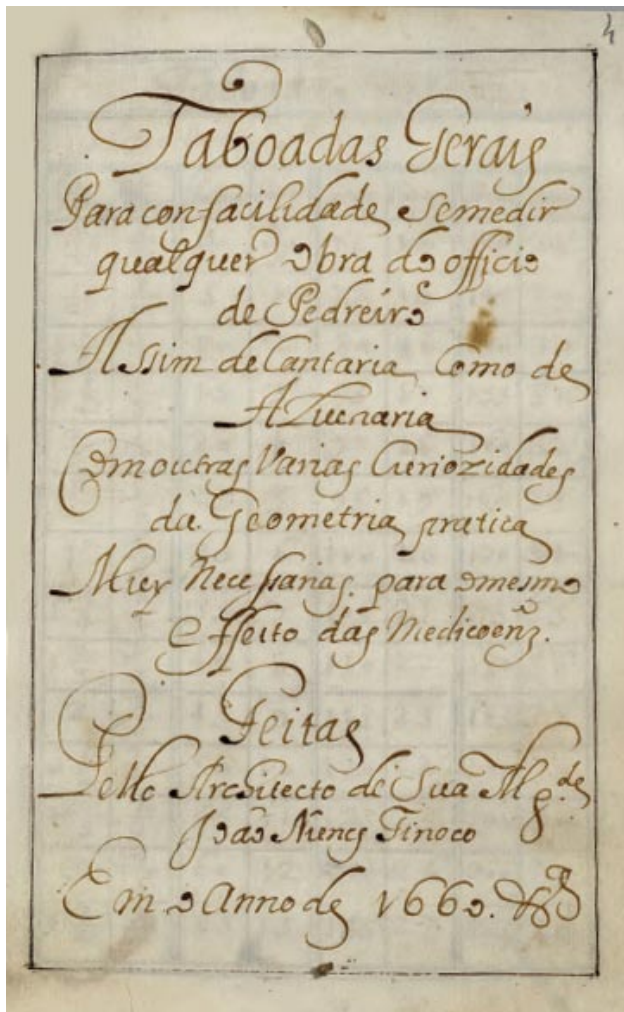 4
Taboadas Gerais
Para con facilidade, se medir
qualquer obra do officio
de Pedreiro
Assim de Cantaria, Como de
Aluenaria
Com outras Varias Curiozidades
da Geometria, pratica,
Muy Necessarias. para o mesmo
effeito das Medicoenz.
Feitas
Pello Architecto de Sua Mg.de
João Nunes Tinoco
Em o Anno de 1660.